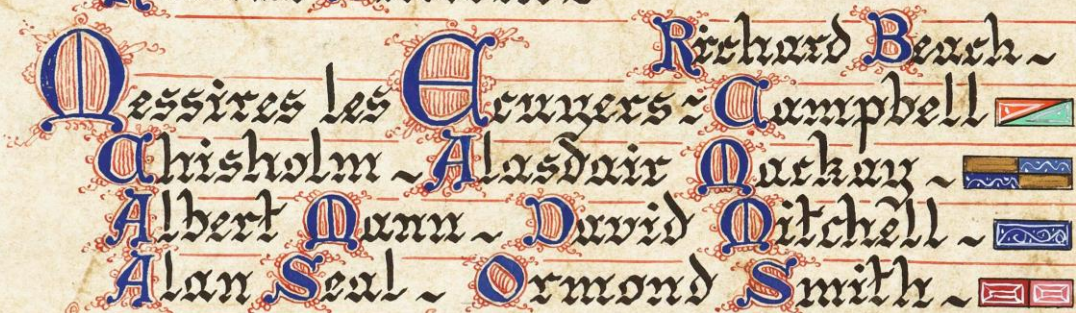 Richard Beach ~
Messires les Ecuyers ~ Campbell
Chisholm ~ Alasdair Mackay ~
Albert Mann ~ David Mitchell ~
Alan Seal ~ Ormond Smith ~